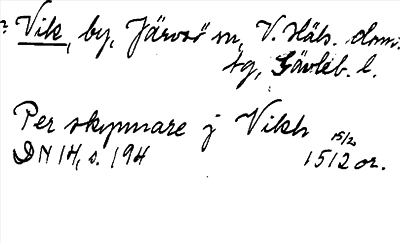 ? Vik, by, Järvsö sn, V. Häls. doms.
tg, Gävleb. l.
Per skynnare j Vikh 15/2
DN 14, s. 194 1512 or.